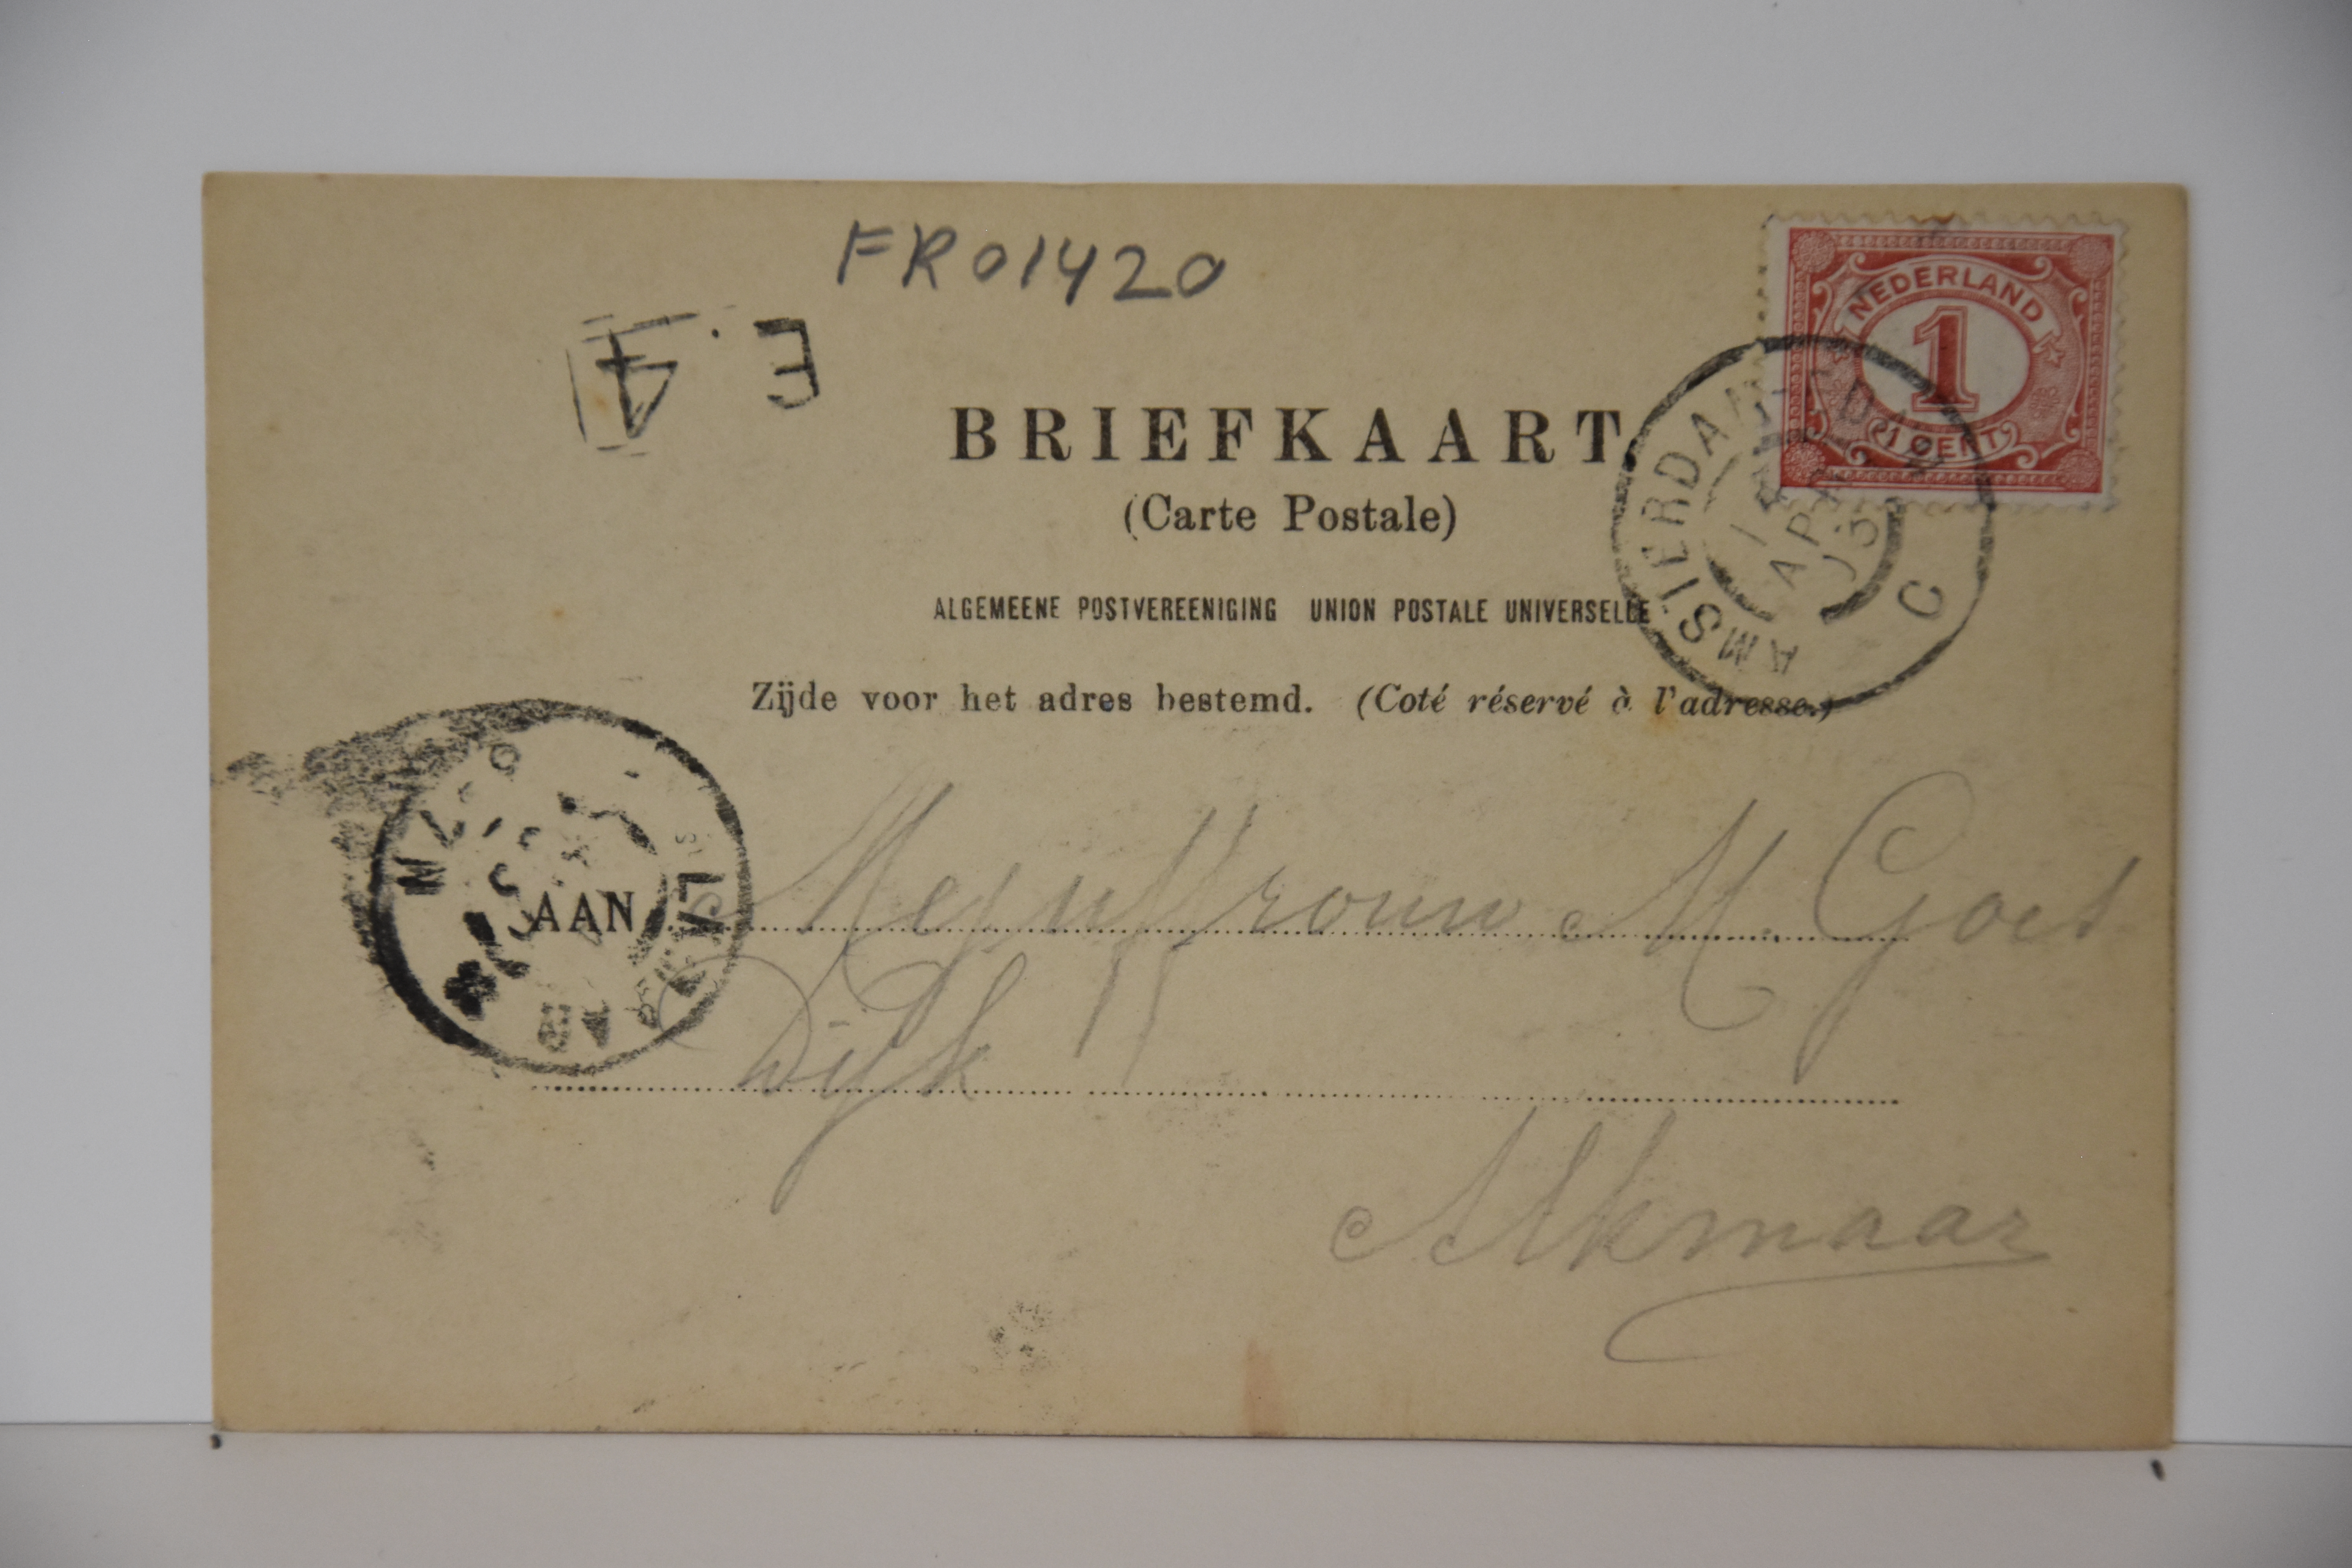 FR01420
NEDERLAND
1
1 CENT
E. 4
BRIEFKAART
(Carte Postale)
AMSTERDAM
C
ALGEMEENE POSTVEREENIGING UNION POSTALE UNIVERSELLE
Zijde voor het adres bestemd. (Coté réservé à l'adresse.)
AAN Mejuffrouw M. Goes
Dijk
Alkmaar